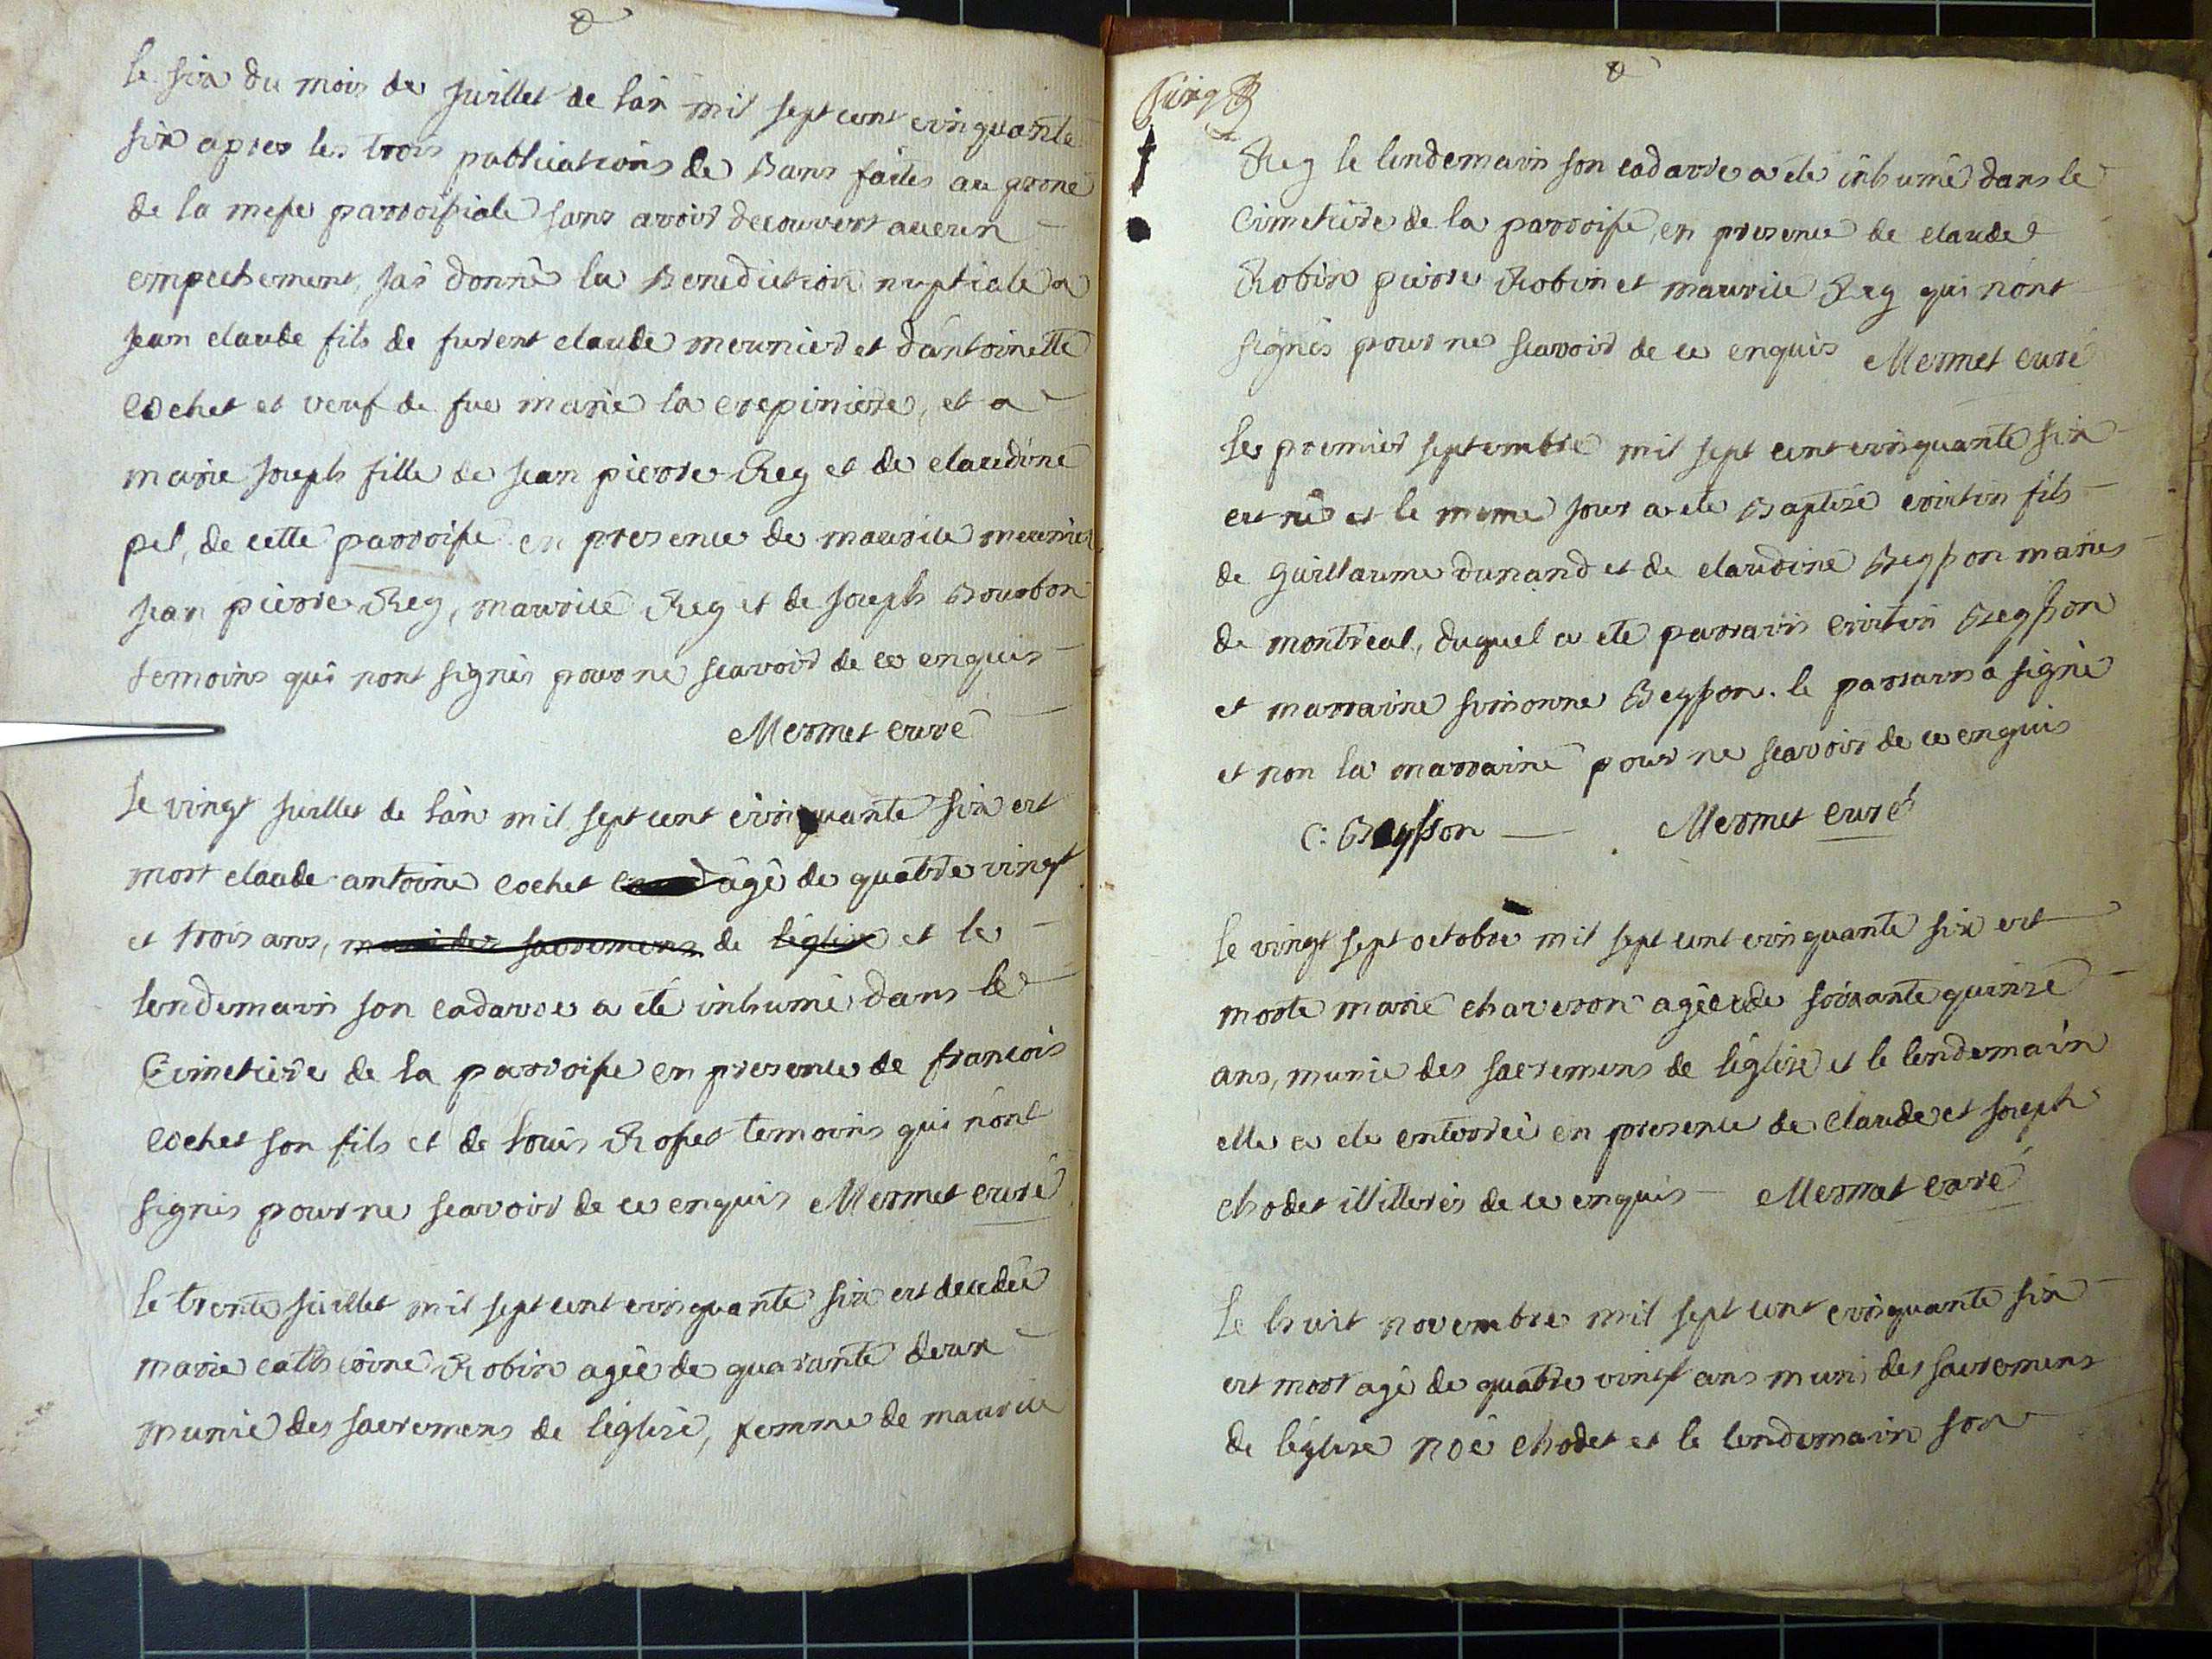 Le six du mois de Juillet de l'an mil sept cent cinquante
six apres les trois publications de Bans faites au prone
de la messe parroissiale sans avoir decouvert aucun
empechement, J'ai donné la Benediction nuptiale a
Jean claude fils de furent claude meunier et d'antoinette
cochet et veuf de fue marie la crepiniere, et a
marie Joseph fille de Jean pierre Rey et de claudine
pel, de cette parroisse en presence de maurice meunier
Jean pierre Rey, maurice Rey et de Joseph Bourbon
temoins qui n'ont signés pour ne scavoir de ce enquis
Mermet curé
Le vingt Juillet de l'an mil sept cent cinquante six est
mort claude antoine cochet âgé de quatre vingt
et trois ans, muni des sacremens de l'église et le
lendemain son cadavre a eté inhumé dans le
Cimetiere de la parroisse en presence de francois
cochet son fils et de Louis Rosset temoins qui n'ont
signés pour ne scavoir de ce enquis Mermet curé
Le trente Juillet mil sept cent cinquante six est decedée
marie catherine Robin agée de quarante deux
munie des sacremens de l'église, femme de maurice
Rey le lendemain son cadavre a été inhumé dans le
Cimetiere de la parroisse, en presence de claude
Robin pierre Robin et maurice Rey qui n'ont
signés pour ne scavoir de ce enquis Mermet curé
Le premier septembre mil sept cent cinquante six
est né et le meme Jour a ete Baptisé cristin fils
de Guillaume Dunand et de claudine Beysson mariés
de montreal, duquel a eté parrain cristin Beysson
et marraine simonne Beysson. le parrain a signé
et non la marraine pour ne scavoir de ce enquis
C: Beysson Mermet curé
Le vingt sept octobre mil sept cent cinquante six est
morte marie chaveron agée de soixante quinze
ans, munie des sacremens de l'église et le lendemain
elle a ete enterrée en presence de claude et Joseph
chodet illiterés de ce enquis Mermet curé
Le huit novembre mil sept cent cinquante six
est mort agé de quatre vingt ans muni des sacremens
de l'église noé chodet et le lendemain son